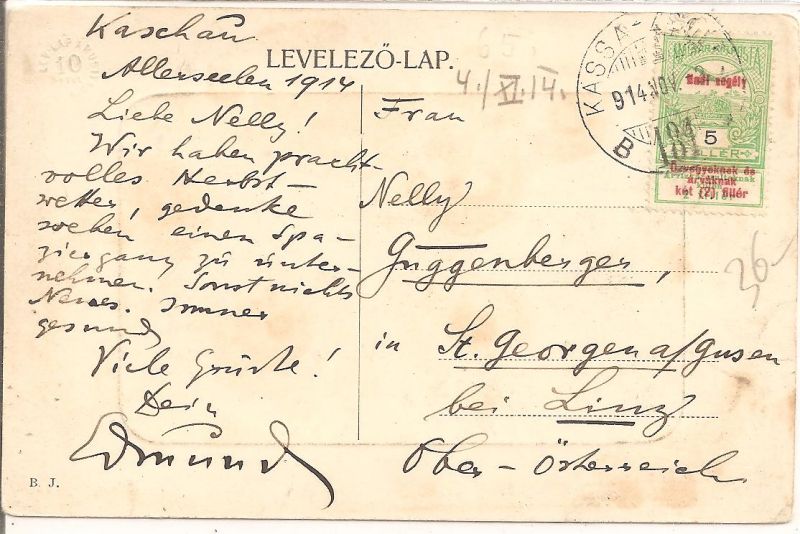 Kaschau
Allerseelen 1914
Liebe Nelly!
Wir haben pracht-
volles Herbst-
wetter, gedenke
soeben einen Spa-
ziergang zu unter-
nehmen. Sonst nichts
Neues. Immer
gesund
Viele Grüße!
Dein
Edmund
B. J.
10
LEVELEZŐ-LAP.
65
4./XI.14.
Frau
Nelly
Guggenberger,
in St. Georgen a/Gusen
bei Linz
Ober-Österreich
26-
KASSA
914 NOV.
B
181
Hadi segély
5
Özvegyeknek és
árváknak
két (2) fillér